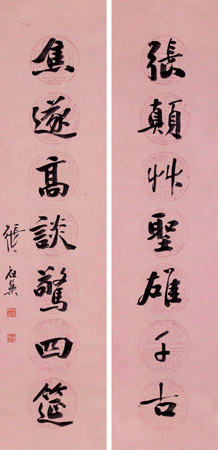 張顛艸聖雄千古
焦遂髙談驚四筵
張